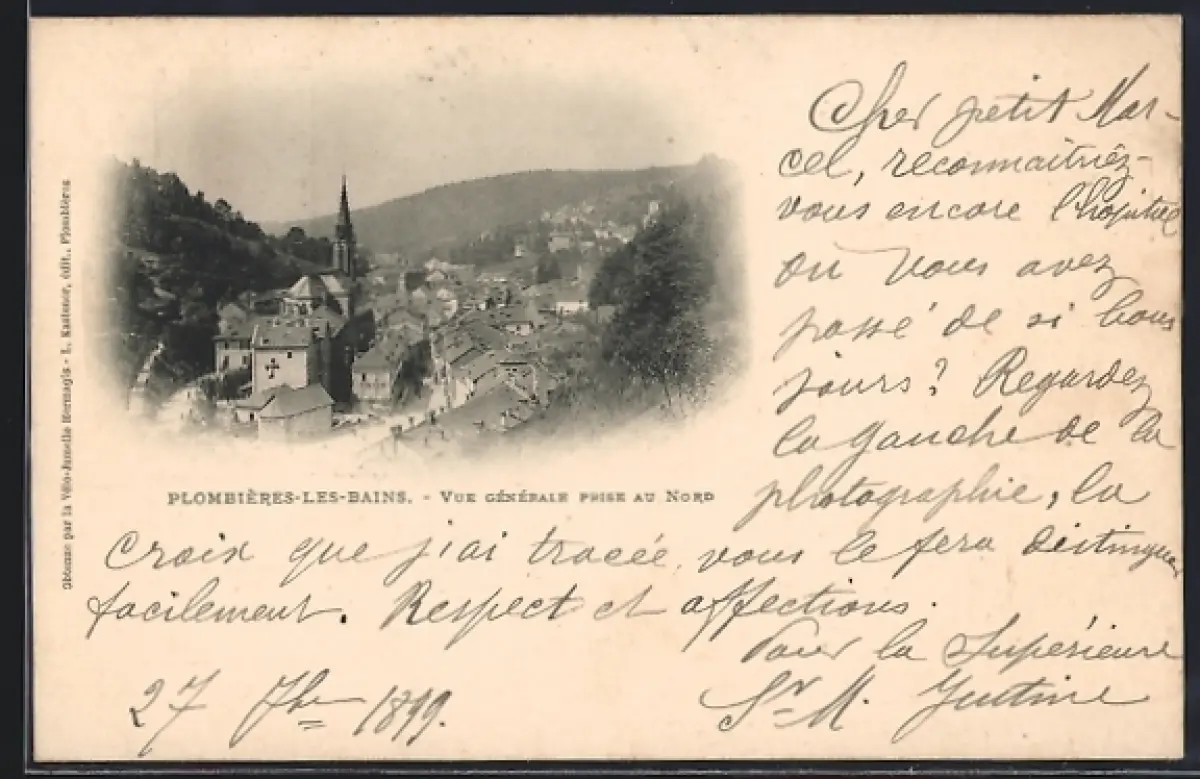 Cher petit Mar-
cel, reconnaîtriez-
vous encore l'hôpital
où vous avez
passé de si bons
jours? Regardez
la gauche de la
photographie, la
croix que j'ai tracée vous le fera distinguer
facilement. Respect et affections.
Pour la Supérieure
Sr M. Justine
27 7bre 1899.
PLOMBIÈRES-LES-BAINS. - VUE GÉNÉRALE PRISE AU NORD
Obtenue par la Vélo-Jumelle Hermagis - L. Kastener, édit., Plombières